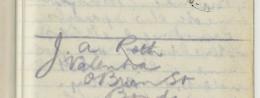 J. A. Roth
Valentia
O'Brien St
Bondi